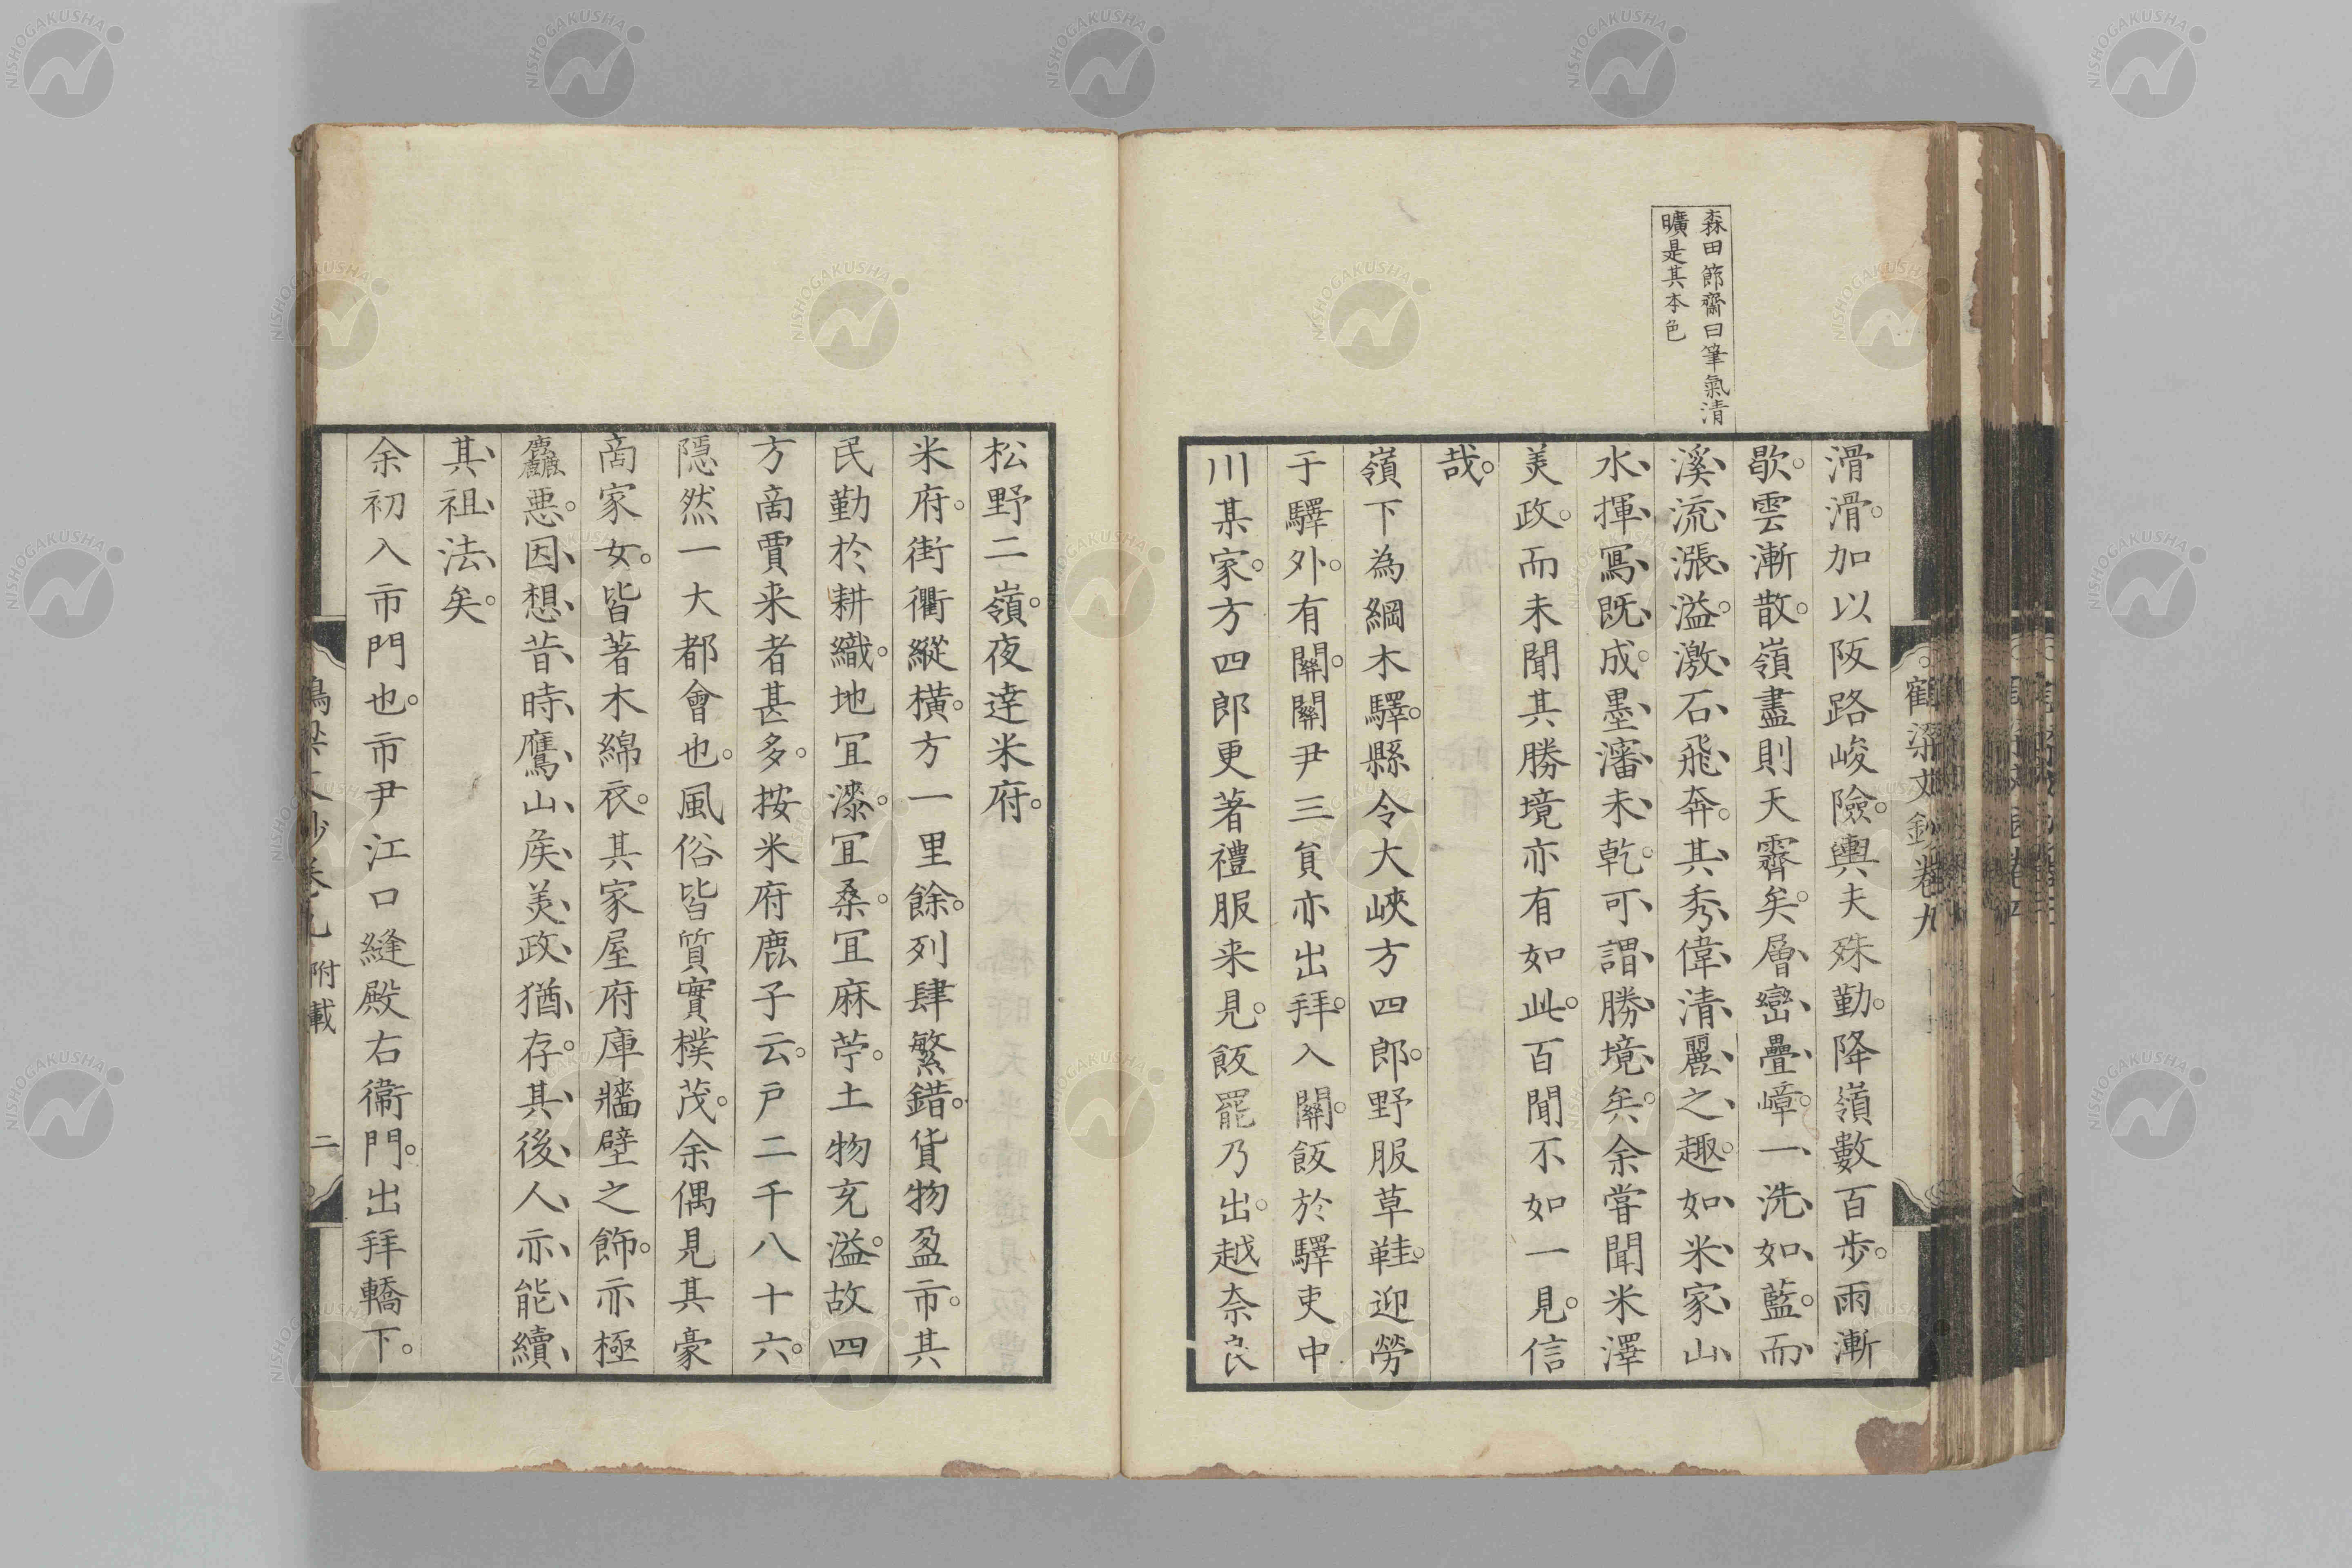 森田節齋曰筆氣清
曠是其本色
鶴梁文鈔卷九
滑滑。加以阪路峻險。輿夫殊勤。降嶺數百步。雨漸
歇。雲漸散。嶺盡則天霽矣。層巒疊嶂。一洗如藍。而
溪流漲溢。激石飛奔。其秀偉清麗之趣。如米家山
水。揮寫既成。墨瀋未乾。可謂勝境矣。余嘗聞米澤
美政。而未聞其勝境亦有如此。百聞不如一見。信
哉。
嶺下為綱木驛。縣令大峽方四郎。野服草鞋。迎勞
于驛外。有關。關尹三貟亦出拜。入關。飯於驛吏中
川某家。方四郎更著禮服来見。飯罷乃出。越奈良
松野二嶺。夜達米府。
米府。街衢縱橫。方一里餘。列肆繁錯。貨物盈市。其
民勤於耕織。地冝漆。冝桑。冝麻苧。土物充溢。故四
方啇賈来者甚多。按米府鹿子云。戶二千八十六。
隱然一大都會也。風俗皆質實樸茂。余偶見其豪
啇家女。皆著木綿衣。其家屋府庫牆壁之飾。亦極
麤悪。因想昔時鷹山矦美政猶存。其後人亦能續
其祖法矣。
余初入市門也。市尹江口縫殿右衞門。出拜轎下。
鶴梁文鈔卷九 附載 二
NISHOGAKUSHA